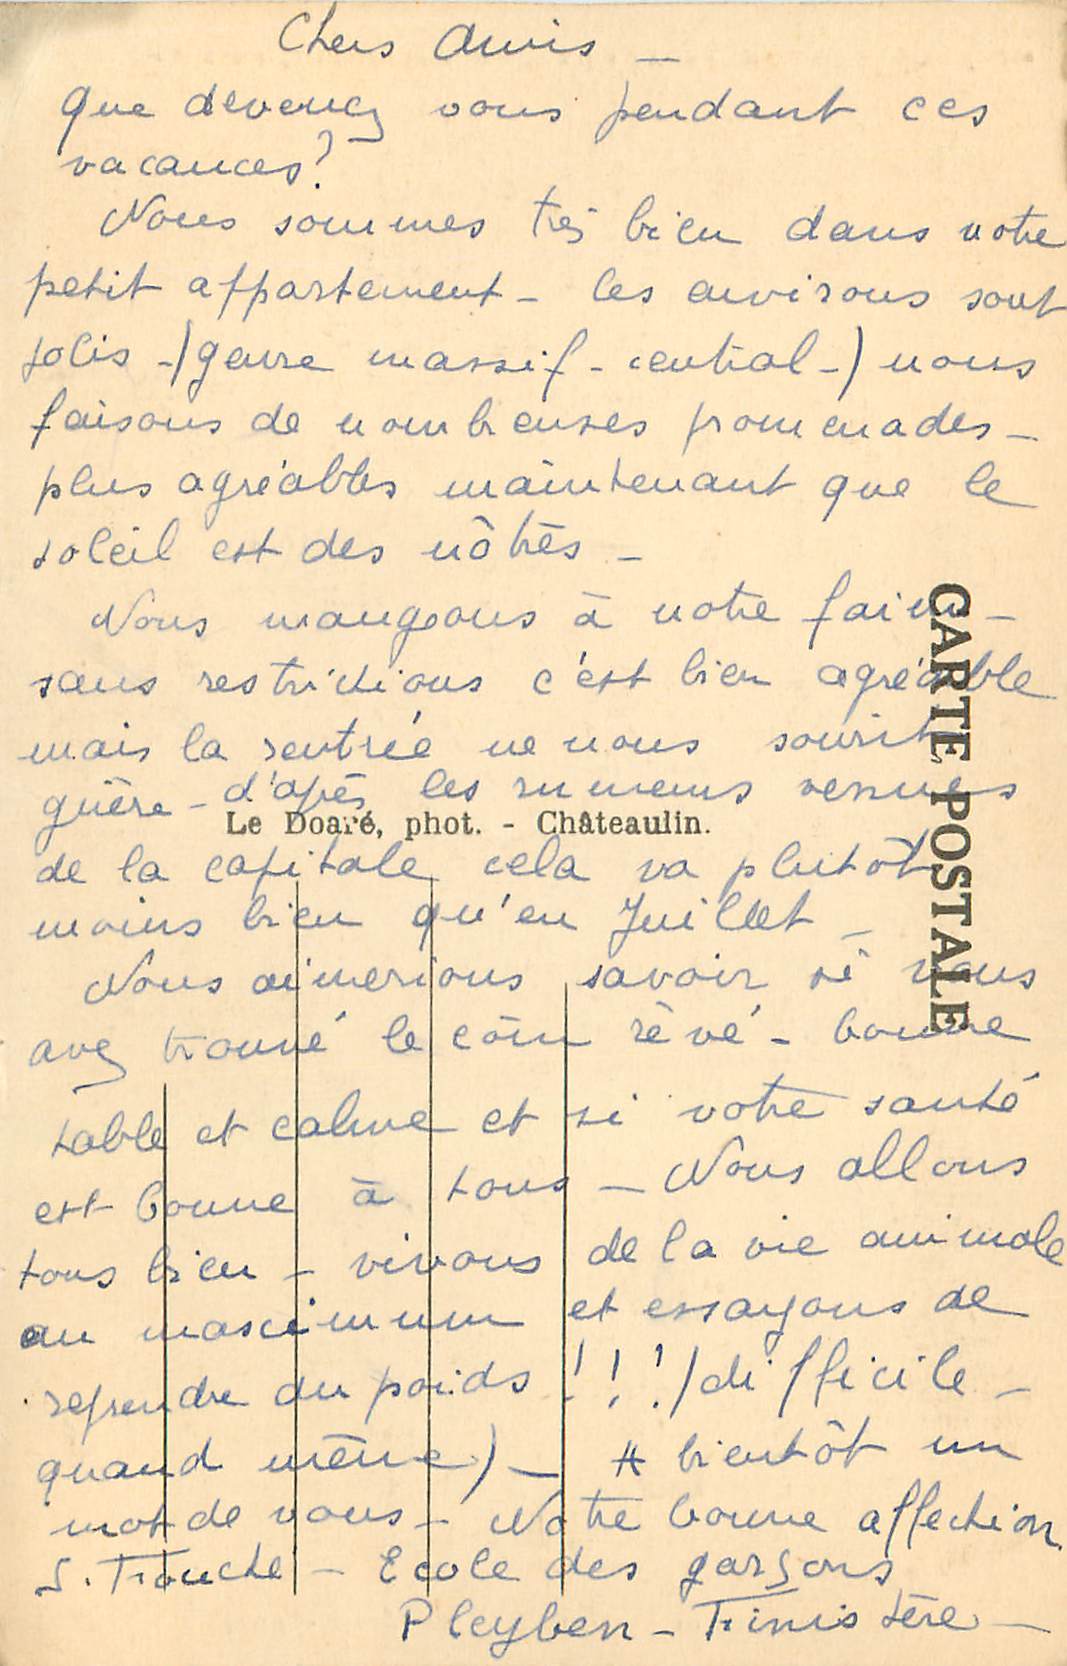 Chers Amis –
que devenez vous pendant ces
vacances?
Nous sommes très bien dans notre
petit appartement – les environs sont
jolis – (genre massif – central –) nous
faisons de nombreuses promenades –
plus agréables maintenant que le
soleil est des nôtres –
Nous mangeons à notre faim –
sans restrictions c'est bien agréable
mais la rentrée ne nous sourit
guère – d'après les rumeurs venues
Le Doaré, phot. - Châteaulin.
de la capitale cela va plutôt
moins bien qu'en Juillet –
Nous aimerions savoir si vous
avez trouvé le coin rêvé – bonne
table et calme et si votre santé
est bonne à tous – Nous allons
tous bien – vivons de la vie animale
au maximum et essayons de
reprendre du poids !!! (difficile –
quand même) – A bientôt un
mot de vous – Notre bonne affection.
S. Trouche – Ecole des garçons
Pleyben – Finistère –
CARTE POSTALE